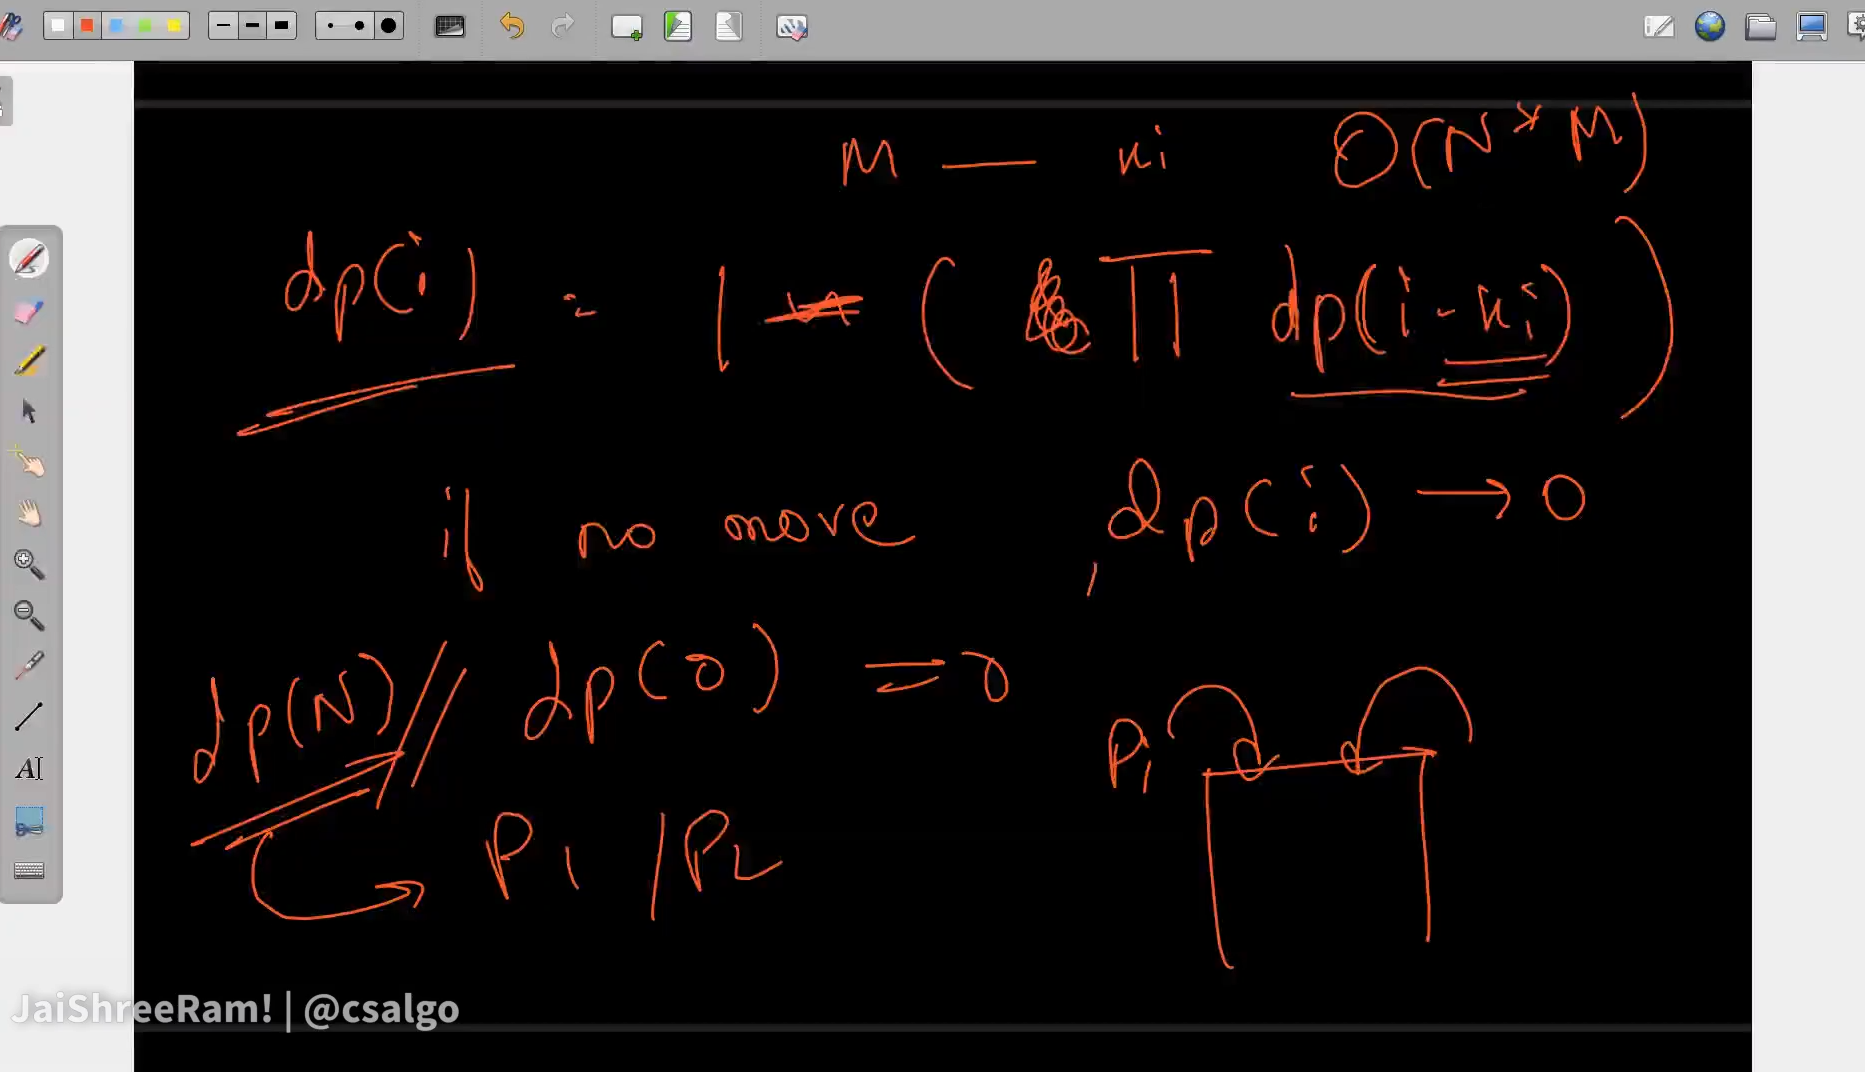 M — xi O(N * M)
dp(i) = 1 - ( ∏ dp(i - xi) )
if no move , dp(i) → 0
dp(N) // dp(0) = 0
P1
P1 / P2
JaiShreeRam! | @csalgo